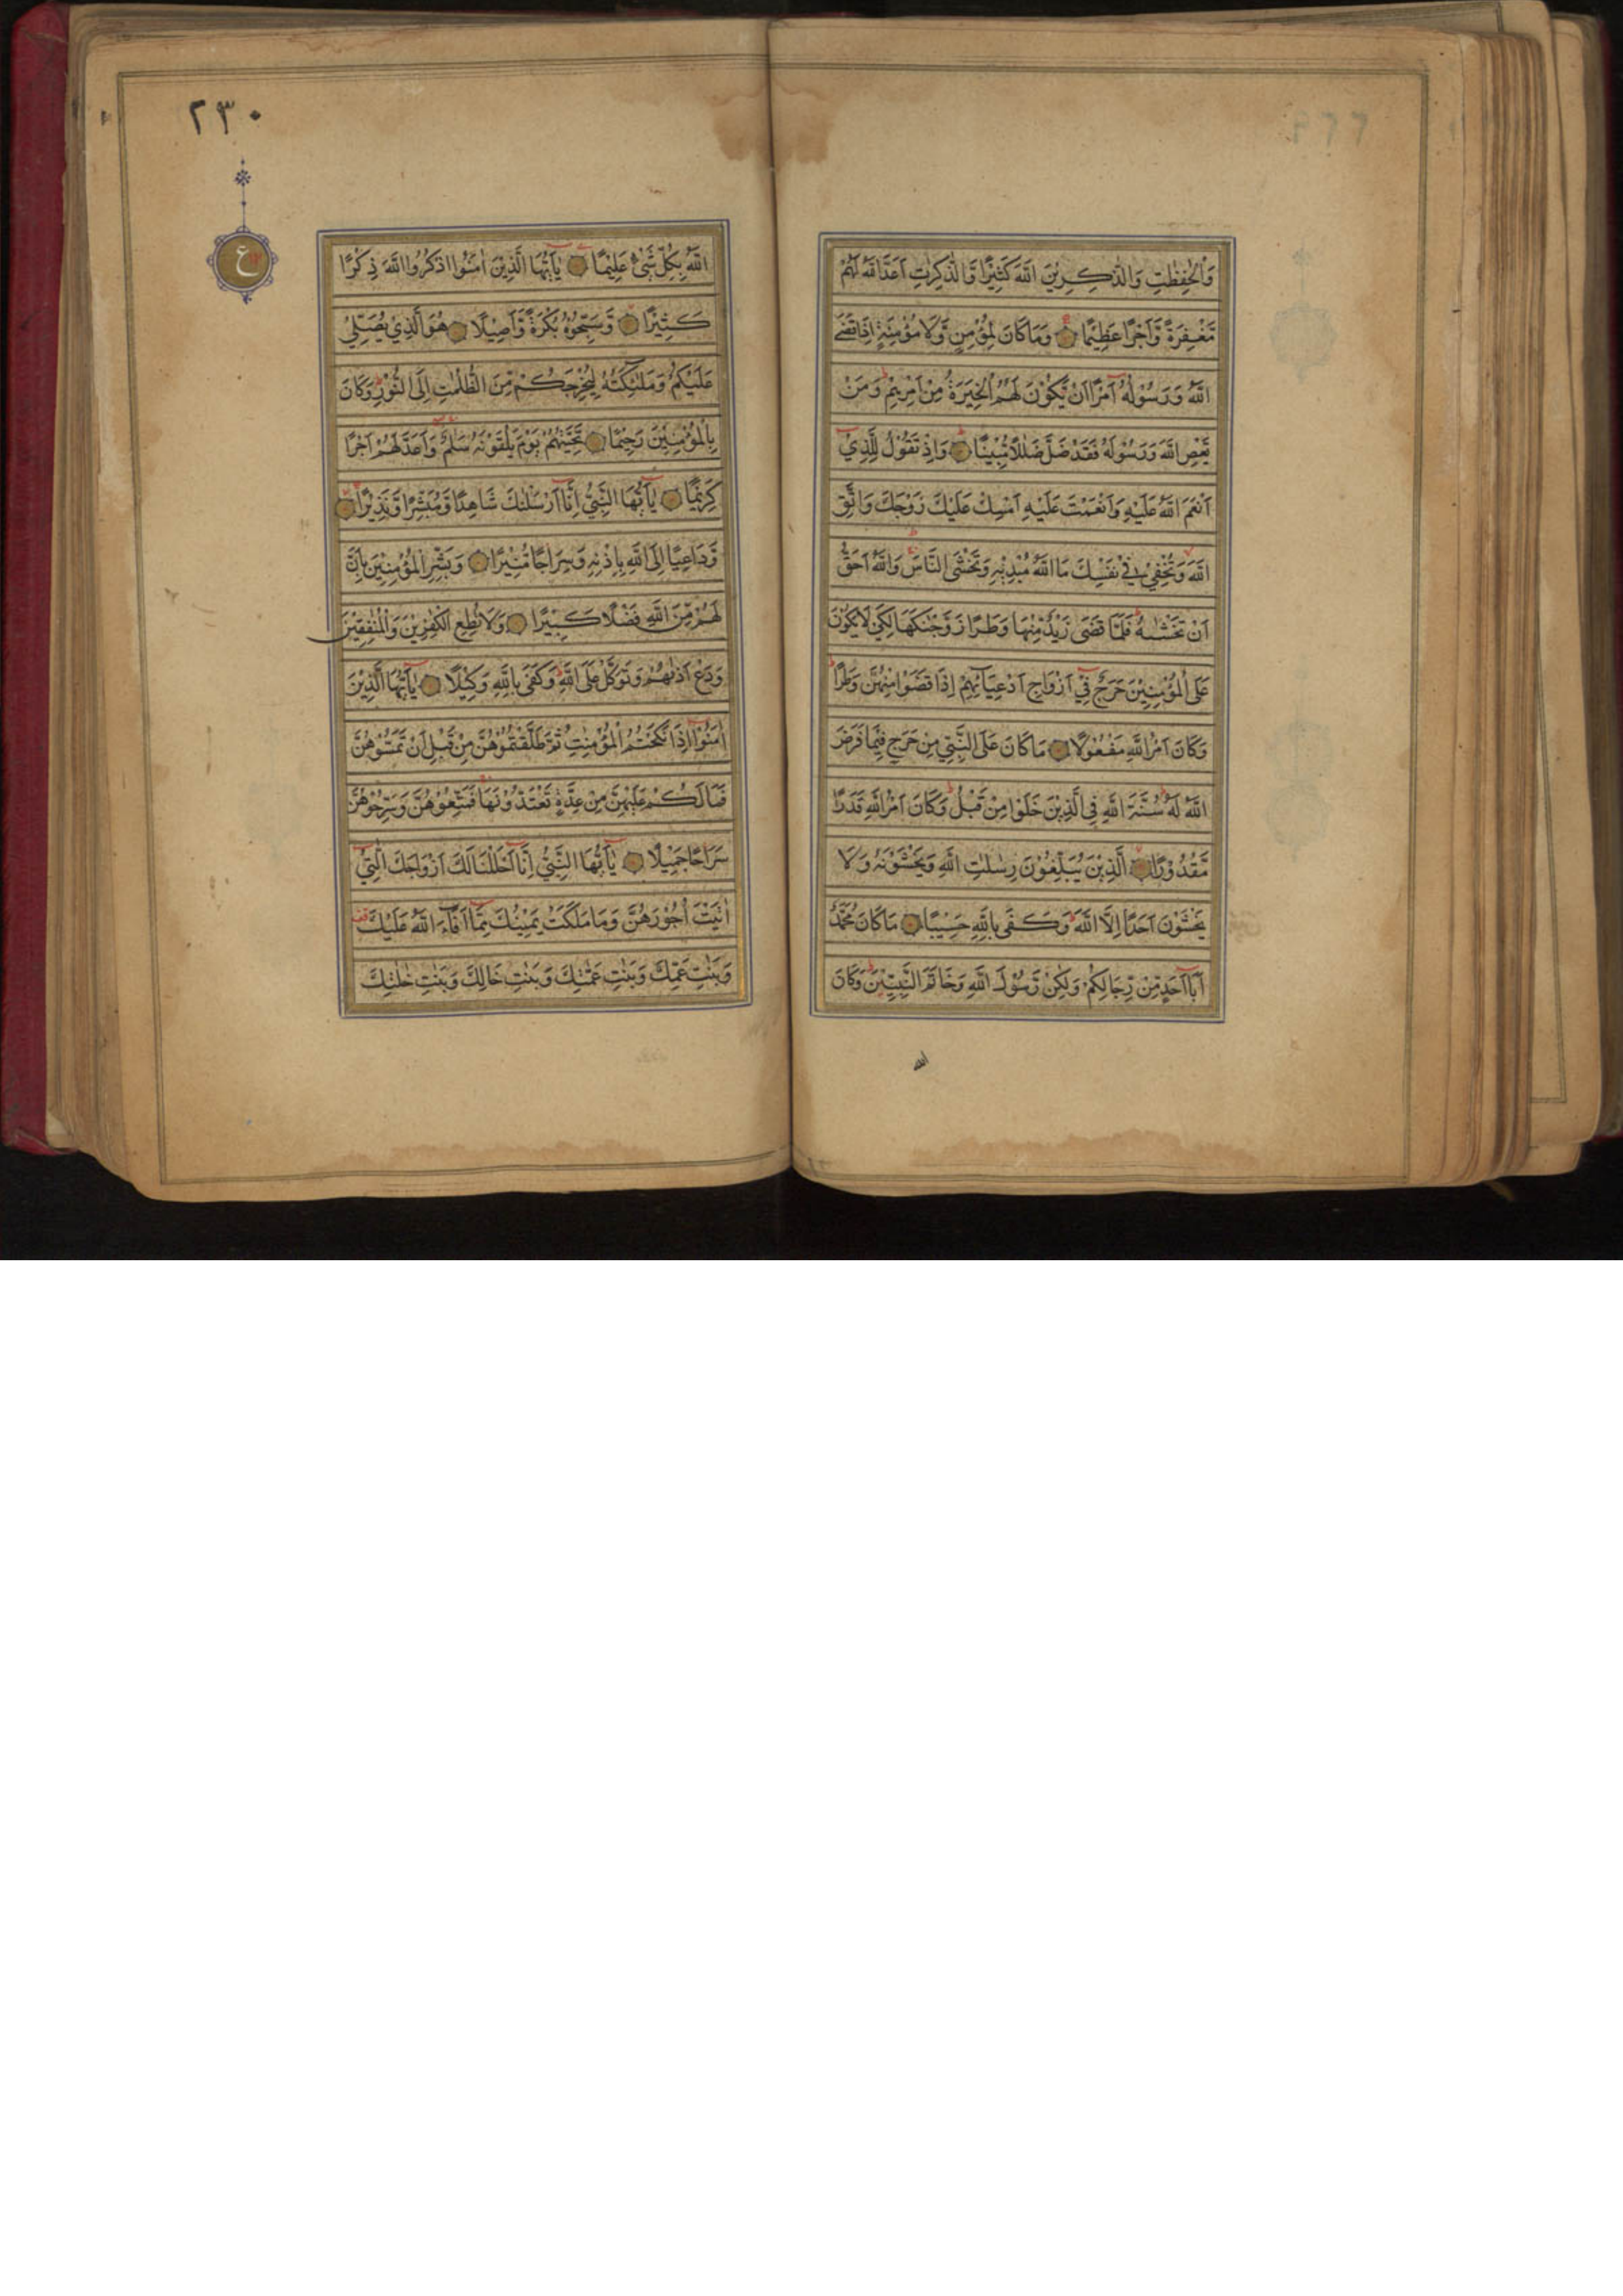 وَالْحٰفِظٰتِ وَالذّٰكِرِيْنَ اللّٰهَ كَثِيْرًا وَّالذّٰكِرٰتِ اَعَدَّ اللّٰهُ لَهُمْ
مَّغْفِرَةً وَّاَجْرًا عَظِيْمًا وَمَا كَانَ لِمُؤْمِنٍ وَّلَا مُؤْمِنَةٍ اِذَا قَضَى
اللّٰهُ وَرَسُوْلُهٗٓ اَمْرًا اَنْ يَّكُوْنَ لَهُمُ الْخِيَرَةُ مِنْ اَمْرِهِمْ وَمَنْ
يَّعْصِ اللّٰهَ وَرَسُوْلَهٗ فَقَدْ ضَلَّ ضَلٰلًا مُّبِيْنًا وَاِذْ تَقُوْلُ لِلَّذِيْٓ
اَنْعَمَ اللّٰهُ عَلَيْهِ وَاَنْعَمْتَ عَلَيْهِ اَمْسِكْ عَلَيْكَ زَوْجَكَ وَاتَّقِ
اللّٰهَ وَتُخْفِيْ فِيْ نَفْسِكَ مَا اللّٰهُ مُبْدِيْهِ وَتَخْشَى النَّاسَ وَاللّٰهُ اَحَقُّ
اَنْ تَخْشٰىهُ فَلَمَّا قَضٰى زَيْدٌ مِّنْهَا وَطَرًا زَوَّجْنٰكَهَا لِكَيْ لَا يَكُوْنَ
عَلَى الْمُؤْمِنِيْنَ حَرَجٌ فِيْٓ اَزْوَاجِ اَدْعِيَآئِهِمْ اِذَا قَضَوْا مِنْهُنَّ وَطَرًا
وَكَانَ اَمْرُ اللّٰهِ مَفْعُوْلًا مَا كَانَ عَلَى النَّبِيِّ مِنْ حَرَجٍ فِيْمَا فَرَضَ
اللّٰهُ لَهٗ سُنَّةَ اللّٰهِ فِي الَّذِيْنَ خَلَوْا مِنْ قَبْلُ وَكَانَ اَمْرُ اللّٰهِ قَدَرًا
مَّقْدُوْرًا الَّذِيْنَ يُبَلِّغُوْنَ رِسٰلٰتِ اللّٰهِ وَيَخْشَوْنَهٗ وَلَا
يَخْشَوْنَ اَحَدًا اِلَّا اللّٰهَ وَكَفٰى بِاللّٰهِ حَسِيْبًا مَا كَانَ مُحَمَّدٌ
اَبَآ اَحَدٍ مِّنْ رِّجَالِكُمْ وَلٰكِنْ رَّسُوْلَ اللّٰهِ وَخَاتَمَ النَّبِيّٖنَ وَكَانَ
الله
٢٣٠
ع
اللّٰهُ بِكُلِّ شَيْءٍ عَلِيْمًا يٰٓاَيُّهَا الَّذِيْنَ اٰمَنُوا اذْكُرُوا اللّٰهَ ذِكْرًا
كَثِيْرًا وَّسَبِّحُوْهُ بُكْرَةً وَّاَصِيْلًا هُوَ الَّذِيْ يُصَلِّيْ
عَلَيْكُمْ وَمَلٰٓئِكَتُهٗ لِيُخْرِجَكُمْ مِّنَ الظُّلُمٰتِ اِلَى النُّوْرِ وَكَانَ
بِالْمُؤْمِنِيْنَ رَحِيْمًا تَحِيَّتُهُمْ يَوْمَ يَلْقَوْنَهٗ سَلٰمٌ وَاَعَدَّ لَهُمْ اَجْرًا
كَرِيْمًا يٰٓاَيُّهَا النَّبِيُّ اِنَّآ اَرْسَلْنٰكَ شَاهِدًا وَّمُبَشِّرًا وَّنَذِيْرًا
وَّدَاعِيًا اِلَى اللّٰهِ بِاِذْنِهٖ وَسِرَاجًا مُّنِيْرًا وَبَشِّرِ الْمُؤْمِنِيْنَ بِاَنَّ
لَهُمْ مِّنَ اللّٰهِ فَضْلًا كَبِيْرًا وَلَا تُطِعِ الْكٰفِرِيْنَ وَالْمُنٰفِقِيْنَ
وَدَعْ اَذٰىهُمْ وَتَوَكَّلْ عَلَى اللّٰهِ وَكَفٰى بِاللّٰهِ وَكِيْلًا يٰٓاَيُّهَا الَّذِيْنَ
اٰمَنُوْٓا اِذَا نَكَحْتُمُ الْمُؤْمِنٰتِ ثُمَّ طَلَّقْتُمُوْهُنَّ مِنْ قَبْلِ اَنْ تَمَسُّوْهُنَّ
فَمَا لَكُمْ عَلَيْهِنَّ مِنْ عِدَّةٍ تَعْتَدُّوْنَهَا فَمَتِّعُوْهُنَّ وَسَرِّحُوْهُنَّ
سَرَاحًا جَمِيْلًا يٰٓاَيُّهَا النَّبِيُّ اِنَّآ اَحْلَلْنَا لَكَ اَزْوَاجَكَ الّٰتِيْٓ
اٰتَيْتَ اُجُوْرَهُنَّ وَمَا مَلَكَتْ يَمِيْنُكَ مِمَّآ اَفَآءَ اللّٰهُ عَلَيْكَ
وَبَنٰتِ عَمِّكَ وَبَنٰتِ عَمّٰتِكَ وَبَنٰتِ خَالِكَ وَبَنٰتِ خٰلٰتِكَ